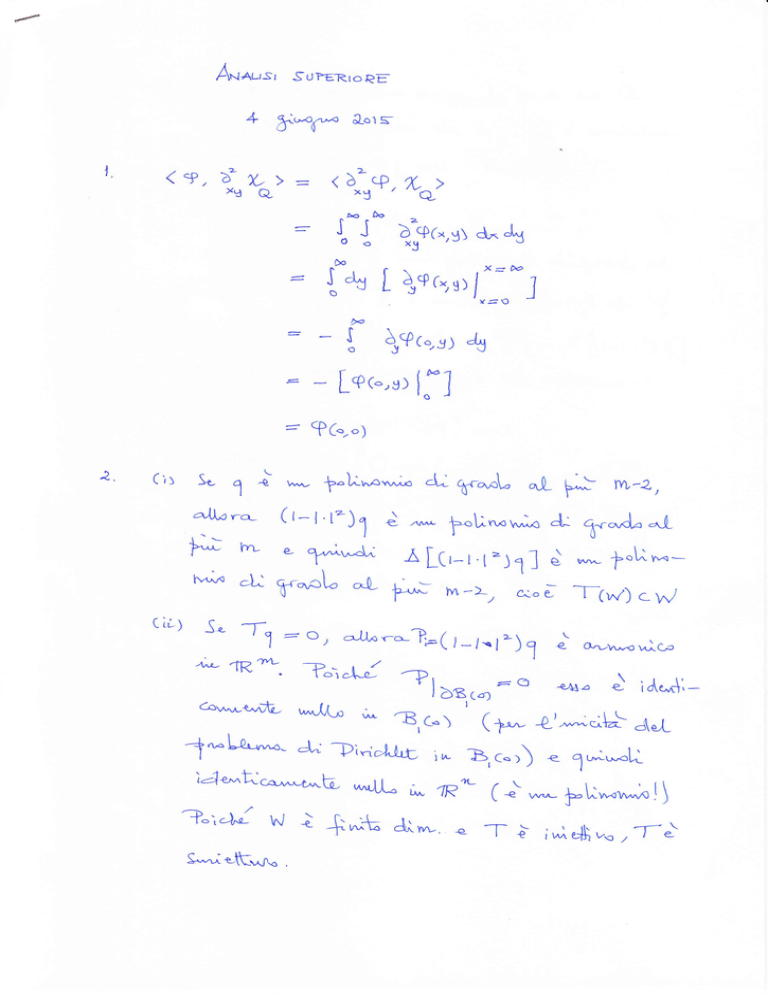 ANALISI SUPERIORE
4 giugno 2015
1. < φ, ∂²_xy χ_Q > = < ∂²_xy φ, χ_Q >
= ∫_0^∞ ∫_0^∞ ∂²_xy φ(x,y) dx dy
= ∫_0^∞ dy [ ∂_y φ(x,y) |_{x=0}^{x=∞} ]
= - ∫_0^∞ ∂_y φ(0,y) dy
= - [ φ(0,y) |_0^∞ ]
= φ(0,0)
2. (i) Se q è un polinomio di grado al più m-2,
allora (1-|·|²)q è un polinomio di grado al
più m e quindi Δ[(1-|·|²)q] è un polino-
mio di grado al più m-2, cioè T(W) ⊂ W
(ii) Se Tq = 0, allora P:=(1-|•|²)q è armonico
in ℝ^m. Poiché P|_{∂B_1(0)} = 0 esso è identi-
camente nullo in B_1(0) (per l'unicità del
problema di Dirichlet in B_1(0)) e quindi
identicamente nullo in ℝ^n (è un polinomio!)
Poiché W è finito dim. e T è iniettivo, T è
suriettivo.